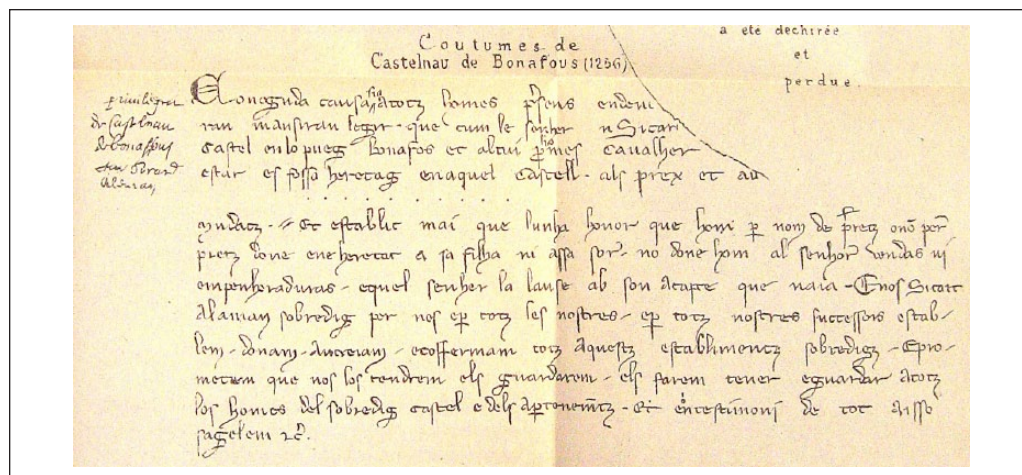 a eté dechirée
et
perdue
Coutumes de
Castelnau de Bonafous (1256)
privileges
de Castelnau
de bonaffous
Conoguda causa sia atotz homes presens endeve
ran manifran legir - que cum le senher n Sicart
Castel enlo pueg Bonafos et altui promes Cavalher
estar es fassa heretag enaquel Castell - als prex et au
mudatz - Et establic mai que lunha honor que hom p nom de pretz ono per
pretz done eneheretat a sa filha ni assa sor - no done hom al senhor vendas ni
empenhoraduras - equel senher la lause ab son acapte que naia - Enos Sicart
Alaman sobredig per nos ep totz les nostres - ep totz nostres successors estab-
lem - donam - Autreiam - ecoffermam totz aquestz establimentz sobredigz - Epro-
metem que nos los tendrem els guardarem - els farem tener eguardar atotz
los homes del sobredig castel e dels apertenemtz - Et entestimoni de tot aisso
sagelem